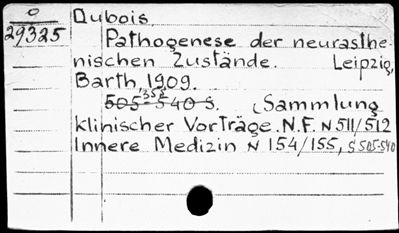 O
29325
Dubois
Pathogenese der neurasthe-
nischen Zustände. Leipzig,
Barth, 1909.
35 S.
505-540 S. (Sammlung
klinischer Vorträge. N.F. N 511/512
Innere Medizin N 154/155, S 505-540